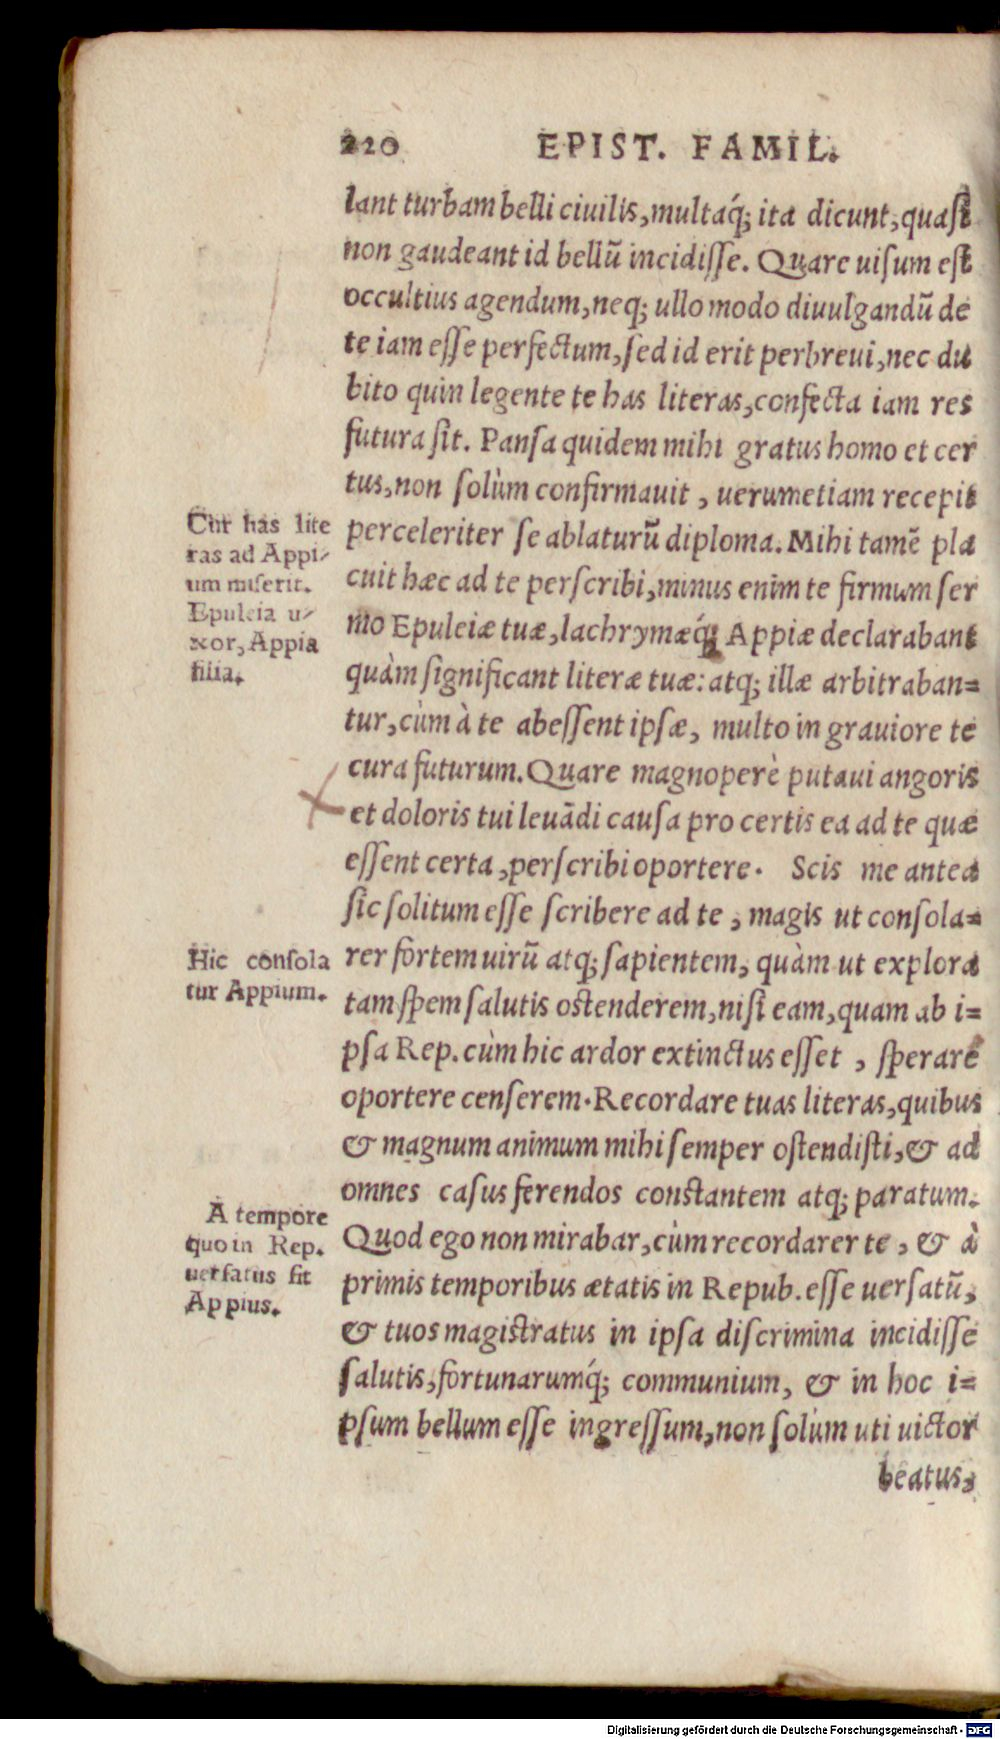 220 EPIST. FAMIL.
lant turbam belli ciuilis, multaq́; ita dicunt, quasi
non gaudeant id bellũ incidiſſe. Quare uiſum eſt
occultius agendum, neq; ullo modo diuulgandũ de
te iam eſſe perfectum, ſed id erit perbreui, nec du
bito quin legente te has literas, confecta iam res
futura ſit. Panſa quidem mihi gratus homo et cer
tus, non ſolùm confirmauit, uerumetiam recepit
perceleriter ſe ablaturũ diploma. Mihi tamẽ pla
cuit hæc ad te perſcribi, minus enim te firmum ſer
mo Epuleiæ tuæ, lachrymæq́; Appiæ declarabant
quàm ſignificant literæ tuæ: atq; illæ arbitraban=
tur, cùm à te abeſſent ipſæ, multo in grauiore te
cura futurum. Quare magnoperè putaui angoris
et doloris tui leuãdi cauſa pro certis ea ad te quæ
eſſent certa, perſcribi oportere. Scis me antea
ſic ſolitum eſſe ſcribere ad te, magis ut conſola=
rer fortem uirũ atq; ſapientem, quàm ut explora
tam ſpem ſalutis oſtenderem, niſi eam, quam ab i=
pſa Rep. cùm hic ardor extinctus eſſet, ſperare
oportere cenſerem. Recordare tuas literas, quibus
& magnum animum mihi ſemper oſtendiſti, & ad
omnes caſus ferendos conſtantem atq; paratum.
Quod ego non mirabar, cùm recordarer te, & à
primis temporibus ætatis in Repub. eſſe uerſatũ,
& tuos magiſtratus in ipſa diſcrimina incidiſſe
ſalutis, fortunarumq́; communium, & in hoc i=
pſum bellum eſſe ingreſſum, non ſolùm uti uictor
beatus,
Cur has lite
ras ad Appi-
um miſerit.
Epuleia u-
xor, Appia
filia.
Hic conſola
tur Appium.
A tempore
quo in Rep.
uerſatus ſit
Appius.
Digitalisierung gefördert durch die Deutsche Forschungsgemeinschaft - DFG